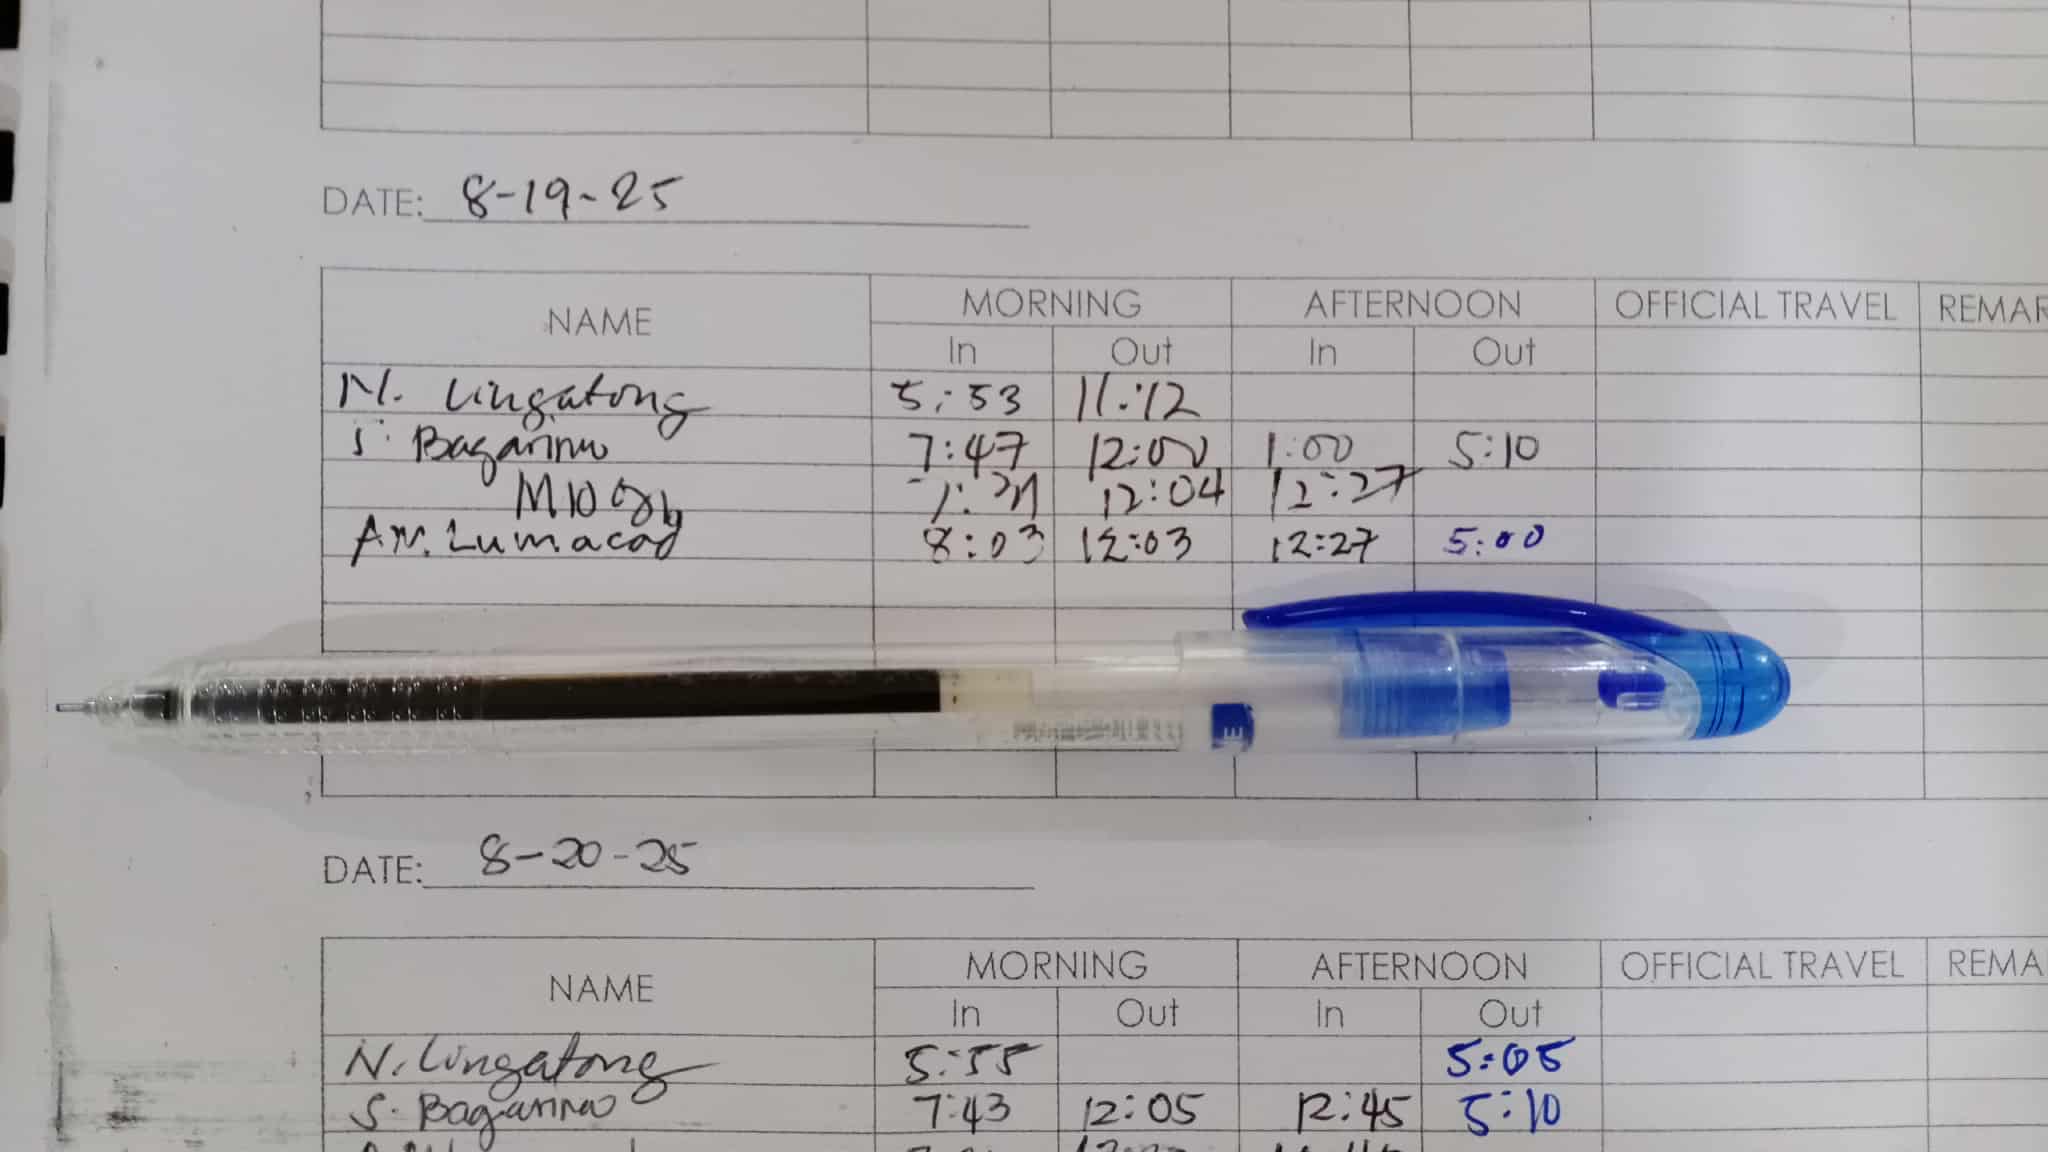 DATE: 8-19-25
NAME MORNING AFTERNOON OFFICIAL TRAVEL REMAR
In Out In Out
N. Lingatong 5:53 11:12
S. Bagarino 7:47 12:00 1:00 5:10
12:04 12:27
A.M. Lumacad 8:03 12:03 12:27 5:00
E
DATE: 8-20-25
NAME MORNING AFTERNOON OFFICIAL TRAVEL REMA
In Out In Out
N. Lingatong 5:55 5:05
S. Bagarino 7:43 12:05 12:45 5:10